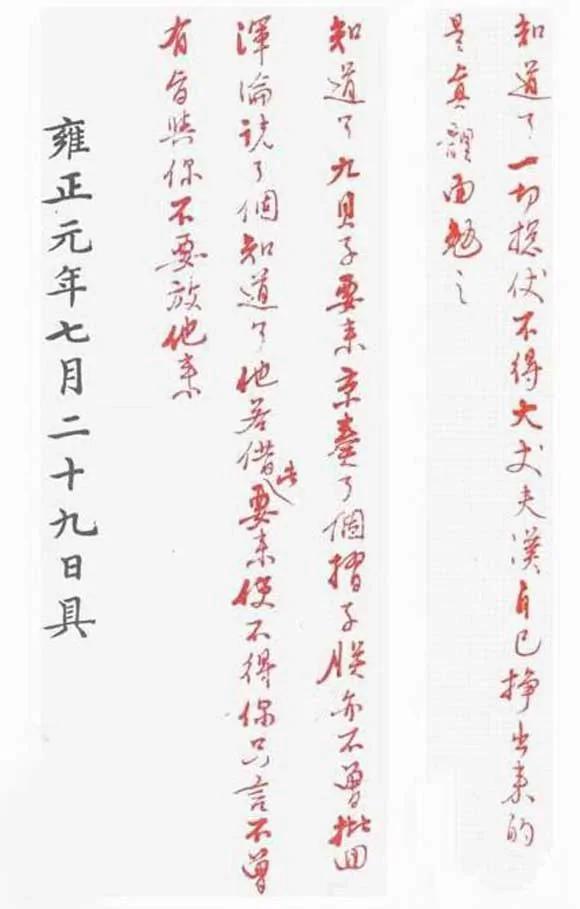 知道了一切捴仗不得大丈夫漢自己挣出来的
是真體面勉之
知道了九貝子要来京奏了個摺子朕亦不曾批回
渾淪説了個知道了他若借此要来使不得你只言不曾
有旨與你不要放他来
雍正元年七月二十九日具